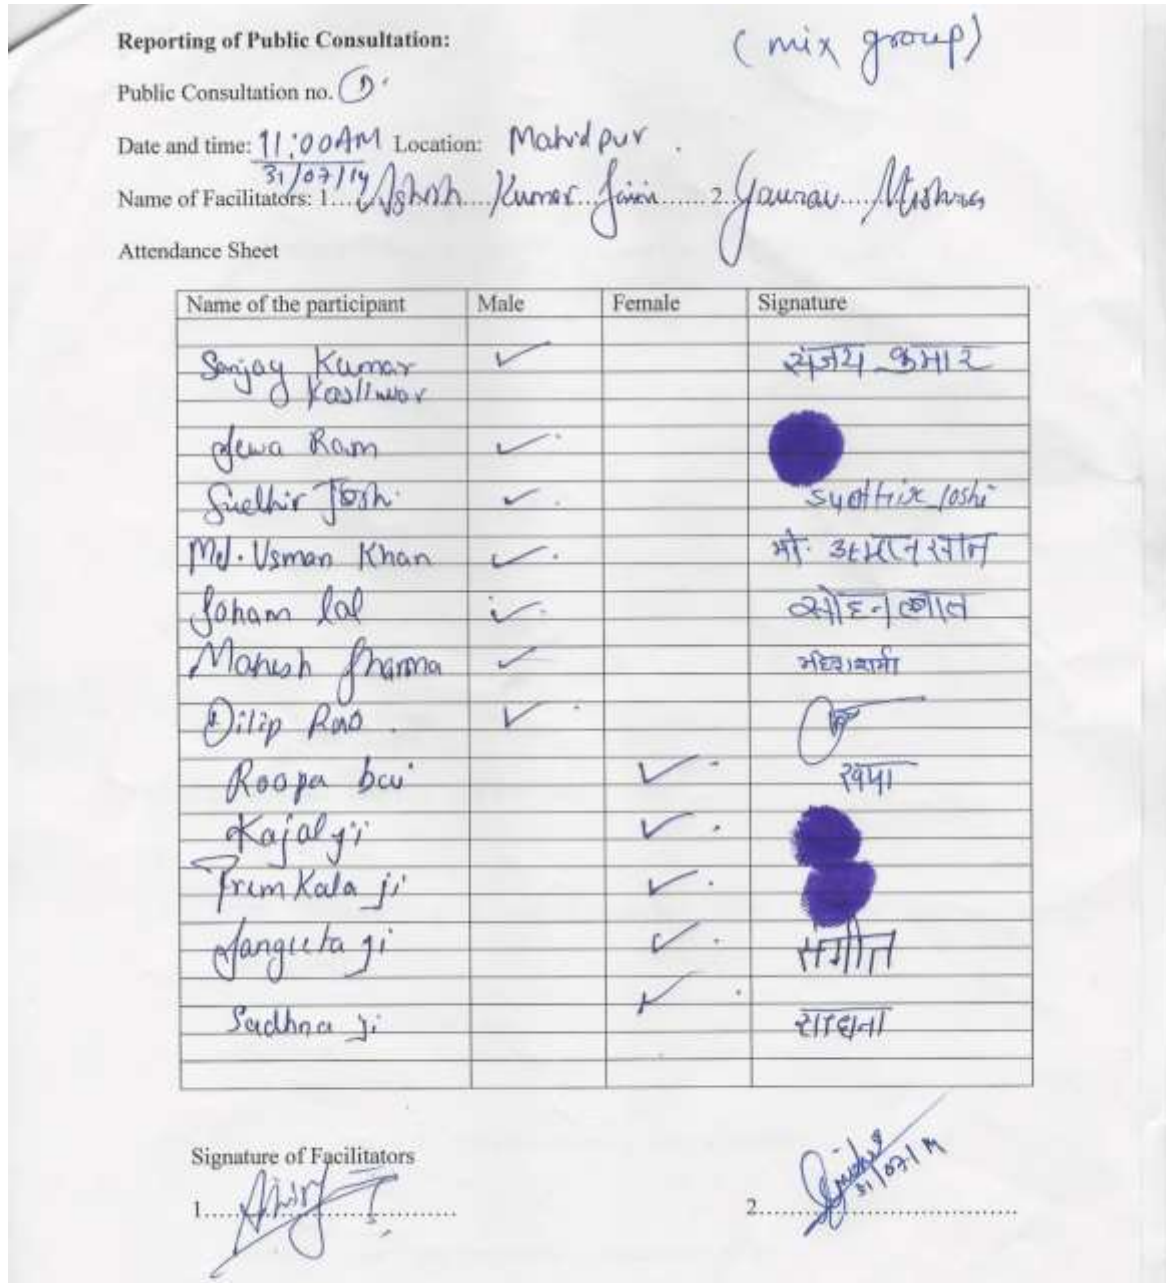 Reporting of Public Consultation:
(mix group)
Public Consultation no. 1
Date and time: 11:00AM Location: Mahidpur.
31/07/14
Name of Facilitators: 1...Ashish Kumar Jain...... 2..Gaurav....Mishra
Attendance Sheet
Name of the participant Male Female Signature
Sanjay Kumar ✓ संजय कुमार
Kasliwar
Sewa Ram ✓
Sudhir Joshi ✓ Sudhir Joshi
Md. Usman Khan ✓ मो. उस्मान खान
Soham lal ✓ सोहनलाल
Mahesh Sharma ✓ महेश शर्मा
Dilip Rao. ✓
Roopa bai ✓ रूपा
Kajal ji ✓
Prem Kala ji ✓
Sangeeta ji ✓ संगीत
Sadhna ji ✓ साधना
Signature of Facilitators
1.............................. 2..............................
31/07/14